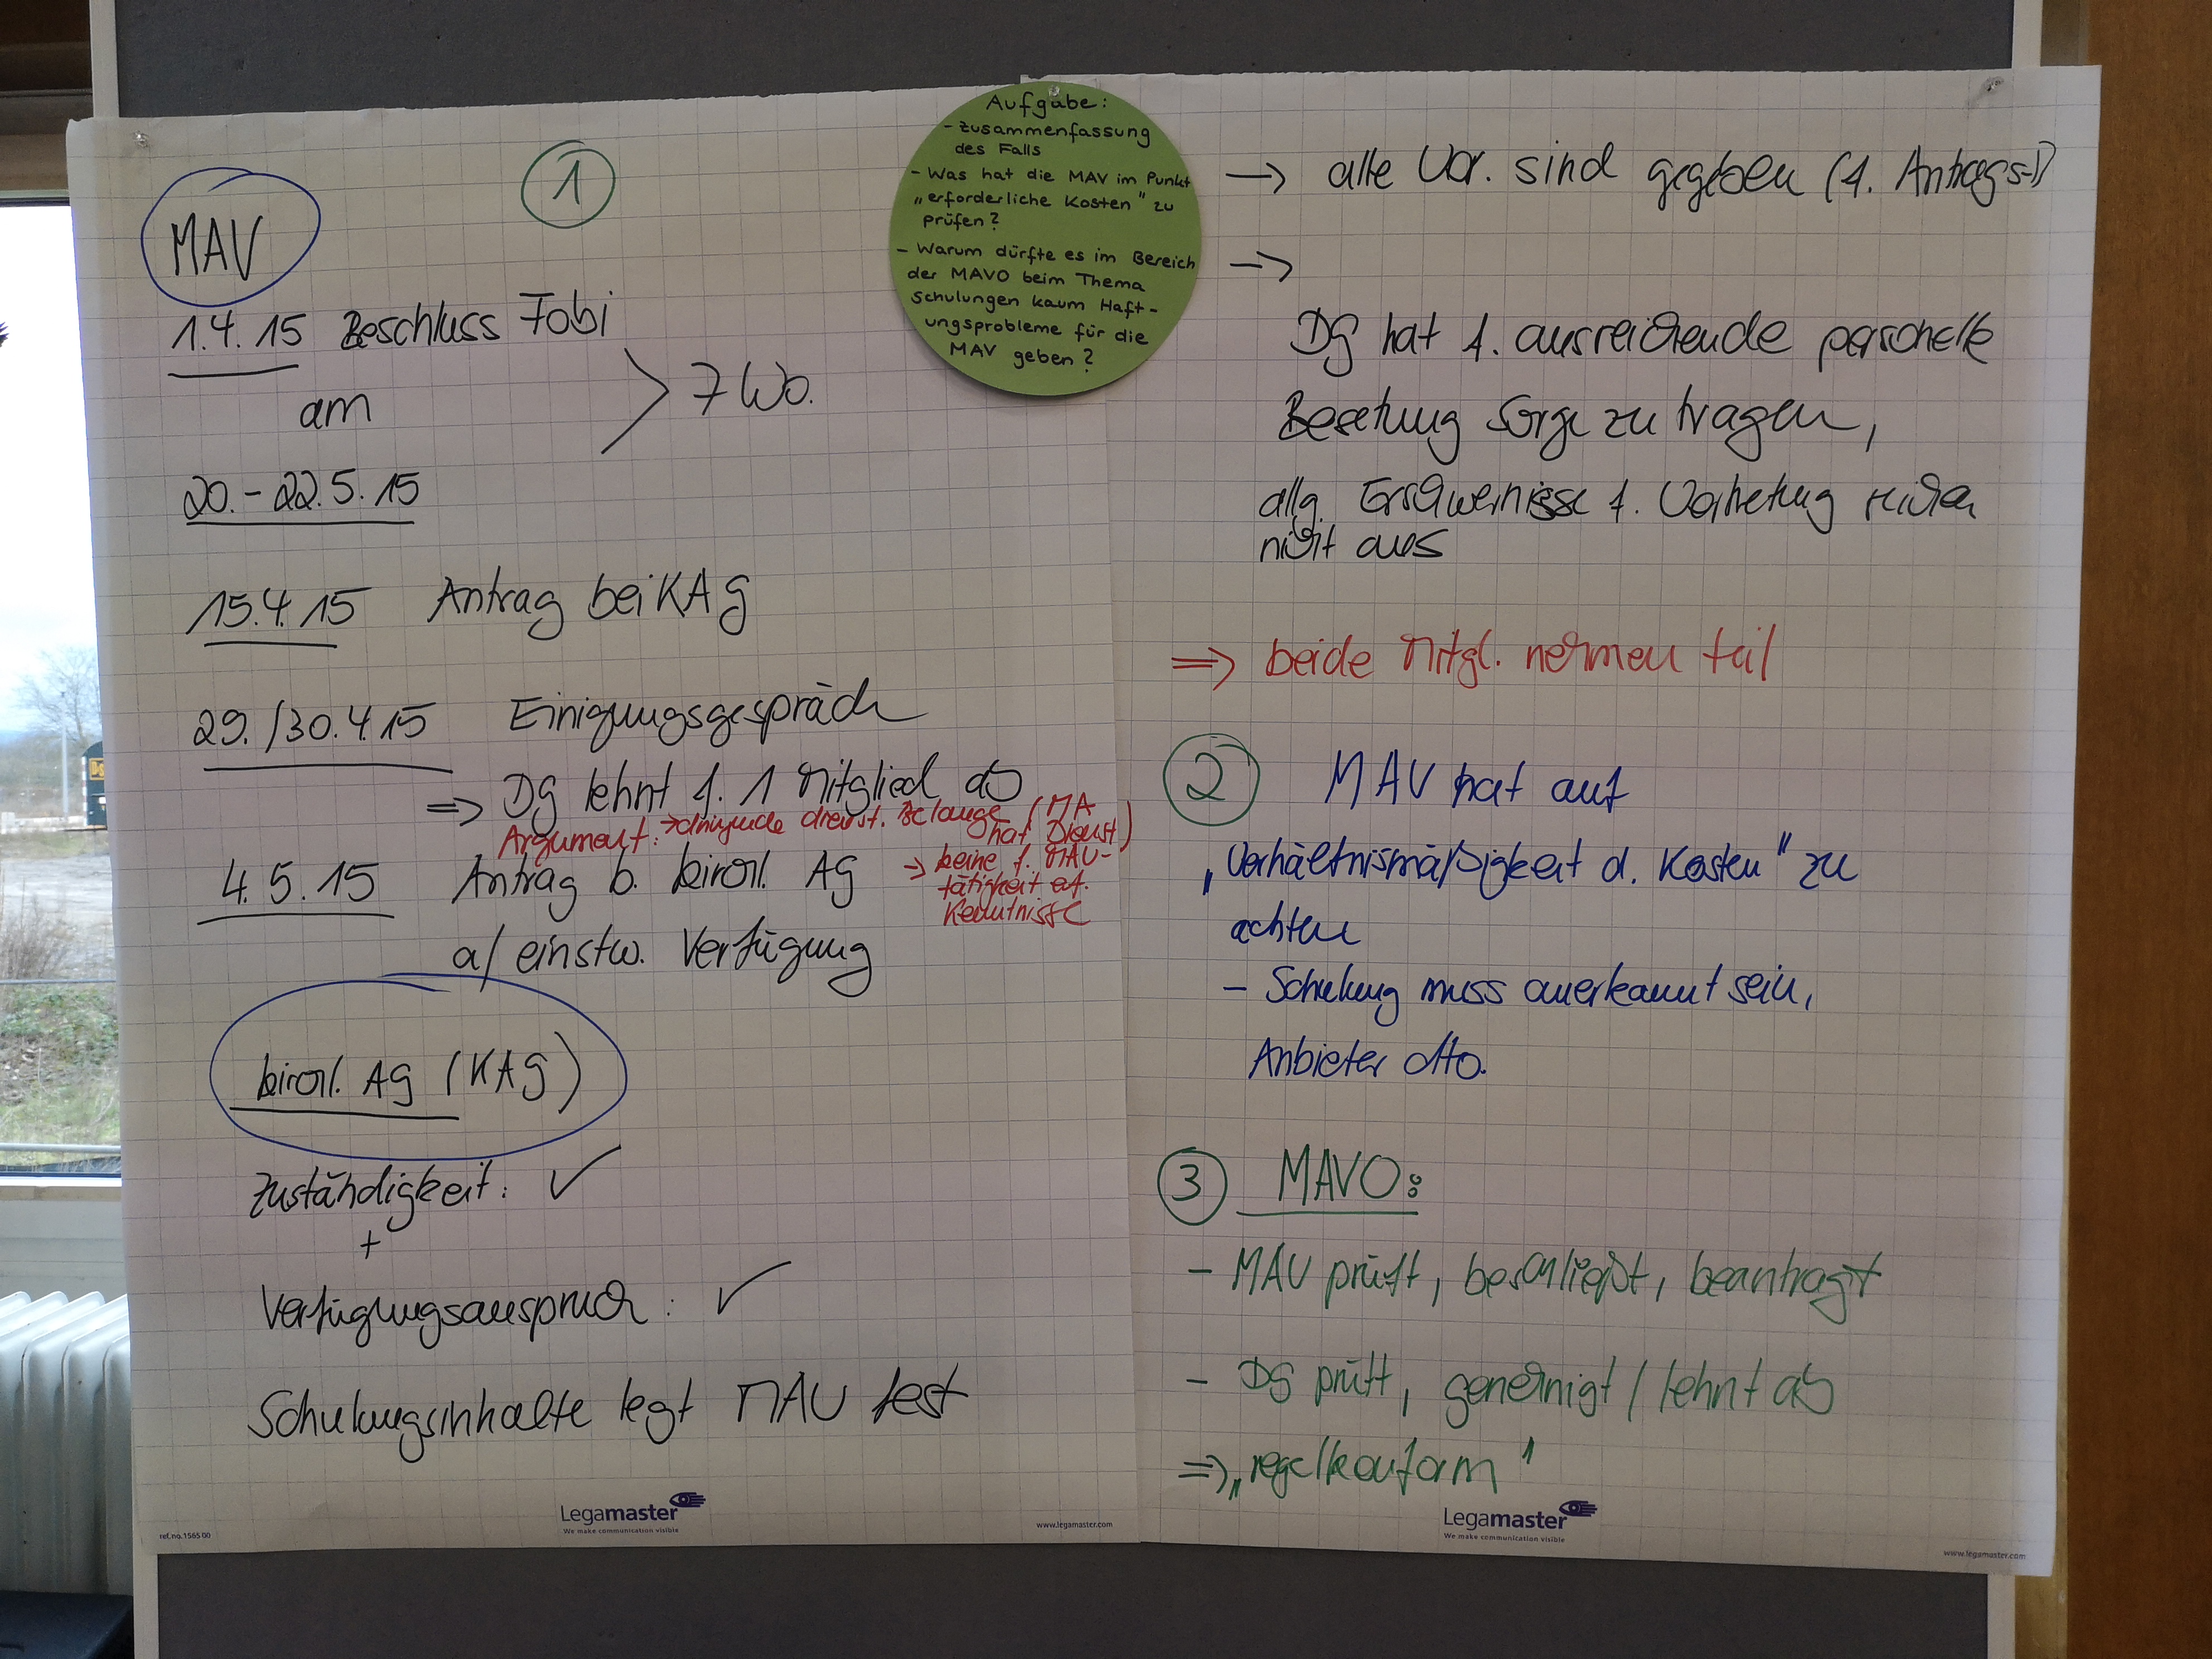 MAV
1
1.4.15 Beschluss Fobi
am
> 7 Wo.
20.-22.5.15
15.4.15 Antrag bei KAG
29./30.4.15 Einigungsgespräch
=> DG lehnt f. 1 Mitglied ab
Argument: → dringende dienst. Belange (MA
hat Dienst)
→ keine f. MAV-
tätigkeit erf.
Kenntnisse
4.5.15 Antrag b. kirchl. AG
a/ einstw. Verfügung
kirchl. AG (KAG)
Zuständigkeit: ✓
+
Verfügungsanspruch: ✓
Schulungsinhalte legt MAV fest
Legamaster
We make communication visible
ref.no.1565 00
www.legamaster.com
Aufgabe:
- Zusammenfassung
des Falls
- Was hat die MAV im Punkt
„erforderliche Kosten" zu
prüfen?
- Warum dürfte es im Bereich
der MAVO beim Thema
Schulungen kaum Haft-
ungsprobleme für die
MAV geben?
→ alle Vor. sind gegeben (f. Antrags-)
→
DG hat f. ausreichende personelle
Besetung Sorge zu tragen,
allg. Erschwernisse f. Vertretung reichen
nicht aus
=> beide Mitgl. nehmen teil
2 MAV hat auf
„Verhältnismäßigkeit d. Kosten" zu
achten
- Schulung muss anerkannt sein,
Anbieter dto.
3 MAVO:
- MAV prüft, beschließt, beantragt
- DG prüft, genehmigt / lehnt ab
=> „regelkonform"
Legamaster
We make communication visible
www.legamaster.com